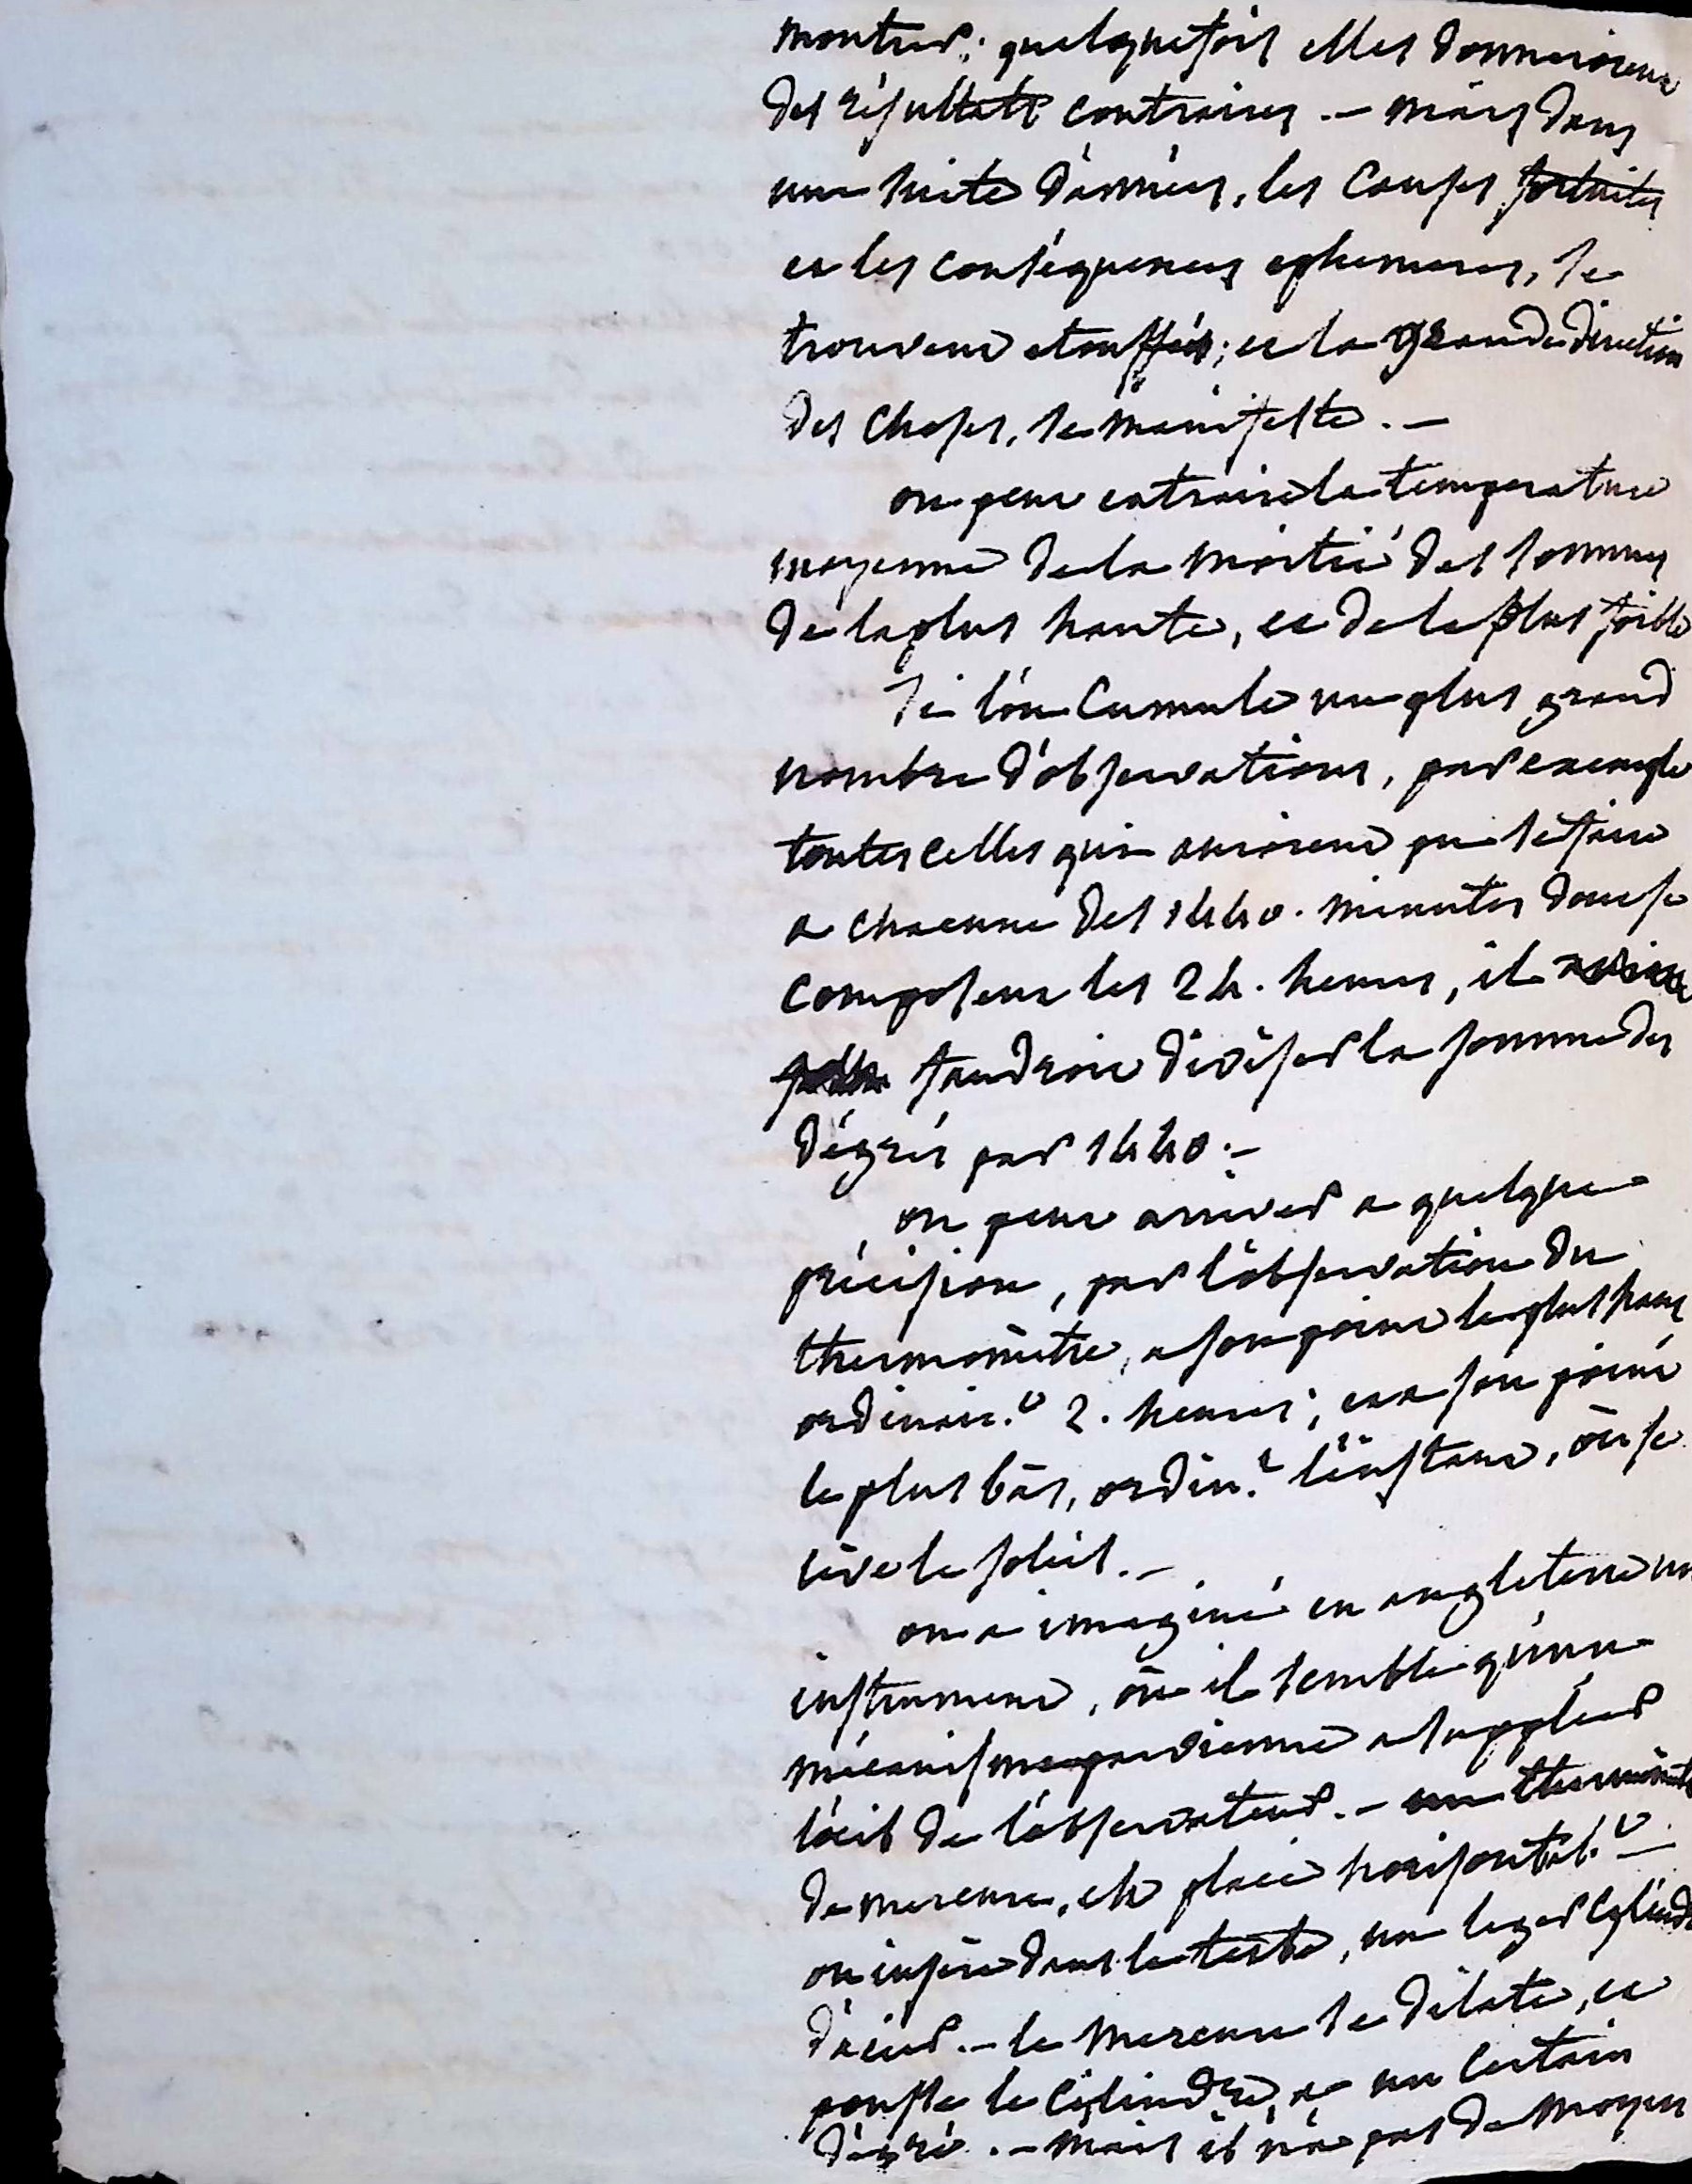 montrer; quelquefois elles donneroient
des résultats contraires. — mais dans
une suite d'années, les causes fortuites
et les conséquences ephemeres, se
trouvent etouffées; et la grande direction
des choses, se manifeste. —
on peut extraire la temperature
moyenne de la moitié des sommes
de la plus haute, et de la plus foible
si l'on cumule un plus grand
nombre d'observations, par exemple
toutes celles qui auroient pu se faire
a chacune des 1440. minutes dont se
composent les 24. heures, il
faudroit diviser la somme des
dégrés par 1440. —
on peut arriver a quelque
précision, par l'observation du
thermomètre, a son point le plus haut
ordinair.t 2. heures; et a son point
le plus bas, ordin.t l'instant, où se
lève le soleil. —
on a imaginé en angleterre un
instrument, où il semble qu'un
mécanisme parvienne a suppléer
l'œil de l'observateur. — un thermomètre
de mercure, est placé horisontal.t —
on insère dans le tube, un leger cylindre
d'acier. — le mercure se dilate, et
pousse le cilindre, a un certain
dégré. — mais il n'a pas de moyen